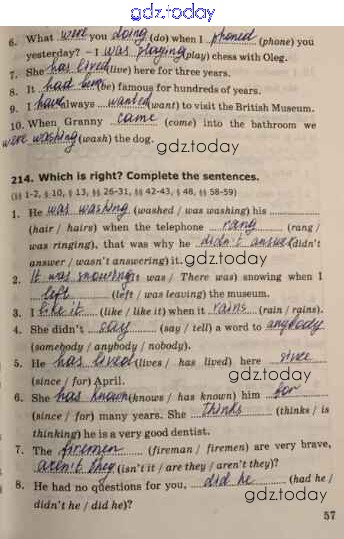 gdz.today
6. What were you doing (do) when I phoned (phone) you
yesterday? – I was playing (play) chess with Oleg.
7. She has lived (live) here for three years.
8. It had been (be) famous for hundreds of years.
9. I have always wanted (want) to visit the British Museum.
10. When Granny came (come) into the bathroom we
were washing (wash) the dog.
gdz.today
214. Which is right? Complete the sentences.
(§§ 1-2, § 10, § 13, §§ 26-31, §§ 42-43, § 48, §§ 58-59)
1. He was washing (washed / was washing) his ............
(hair / hairs) when the telephone rang (rang /
was ringing), that was why he didn't answer (didn't
answer / wasn't answering) it.
gdz.today
2. It was snowing (it was / There was) snowing when I
left (left / was leaving) the museum.
3. I like it (like / like it) when it rains (rain / rains).
4. She didn't say (say / tell) a word to anybody
(somebody / anybody / nobody).
5. He has lived (lives / has lived) here since
(since / for) April.
gdz.today
6. She has known (knows / has known) him for
(since / for) many years. She thinks (thinks / is
thinking) he is a very good dentist.
7. The firemen (fireman / firemen) are very brave,
aren't they (isn't it / are they / aren't they)?
gdz.today
8. He had no questions for you, did he (had he /
didn't he / did he)?
gdz.today
57